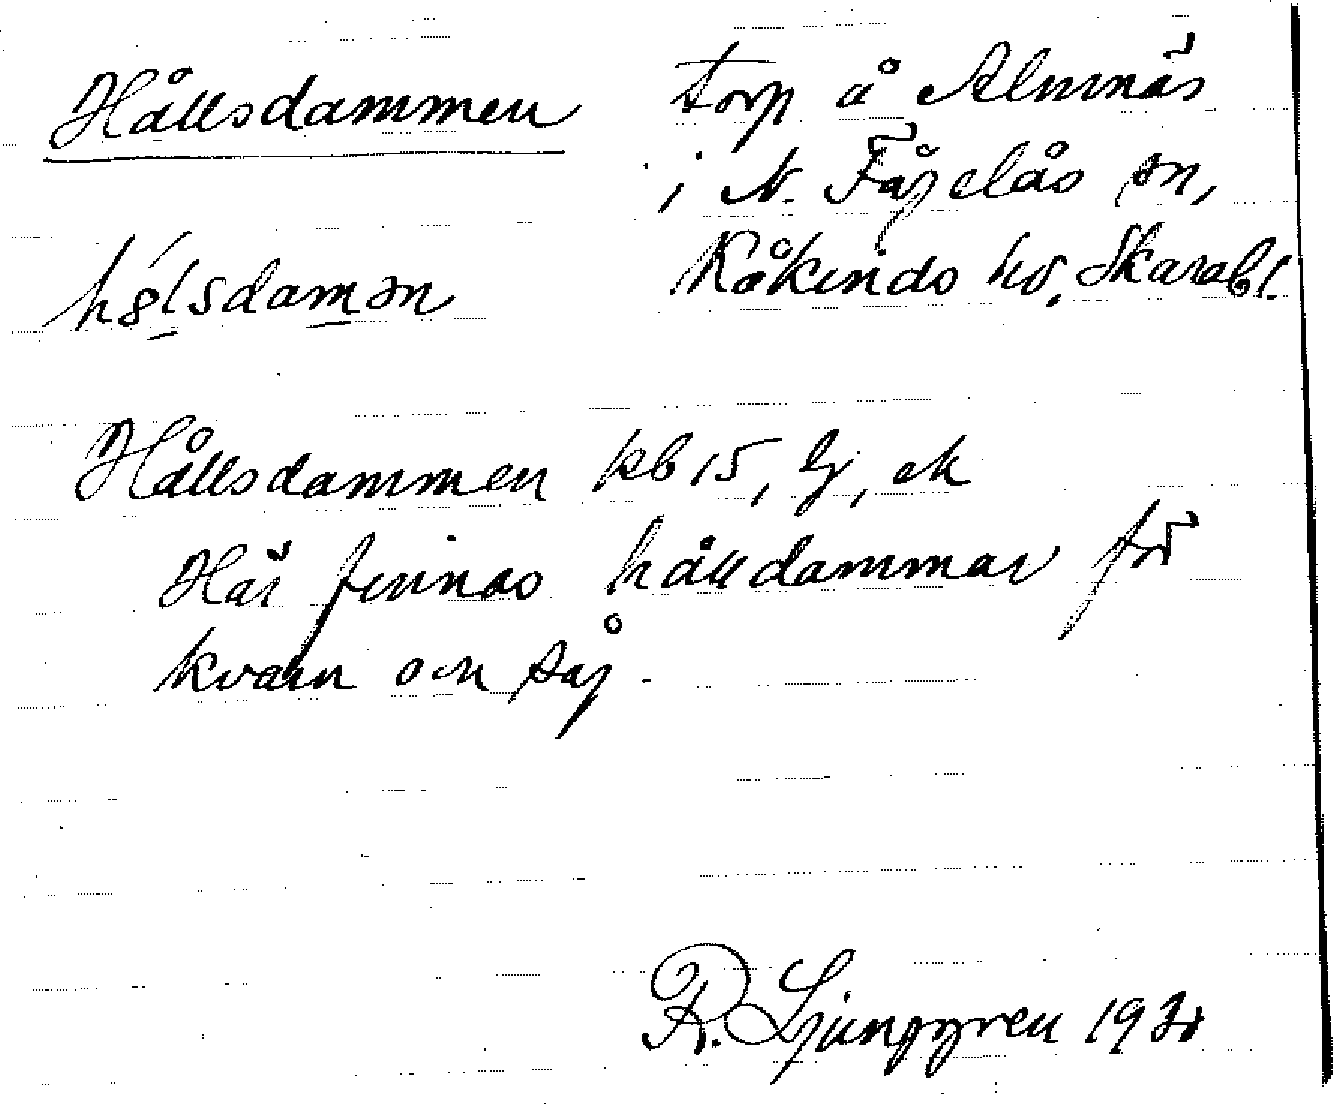 Hållsdammen torp å Almnäs
i N. Fågelås sn,
hȯ́lsdamən Kåkinds hd, Skarabl.
Hållsdammen kb 15, lj, ek
Här finnas hålldammar för
kvarn och såg.
R. Ljunggren